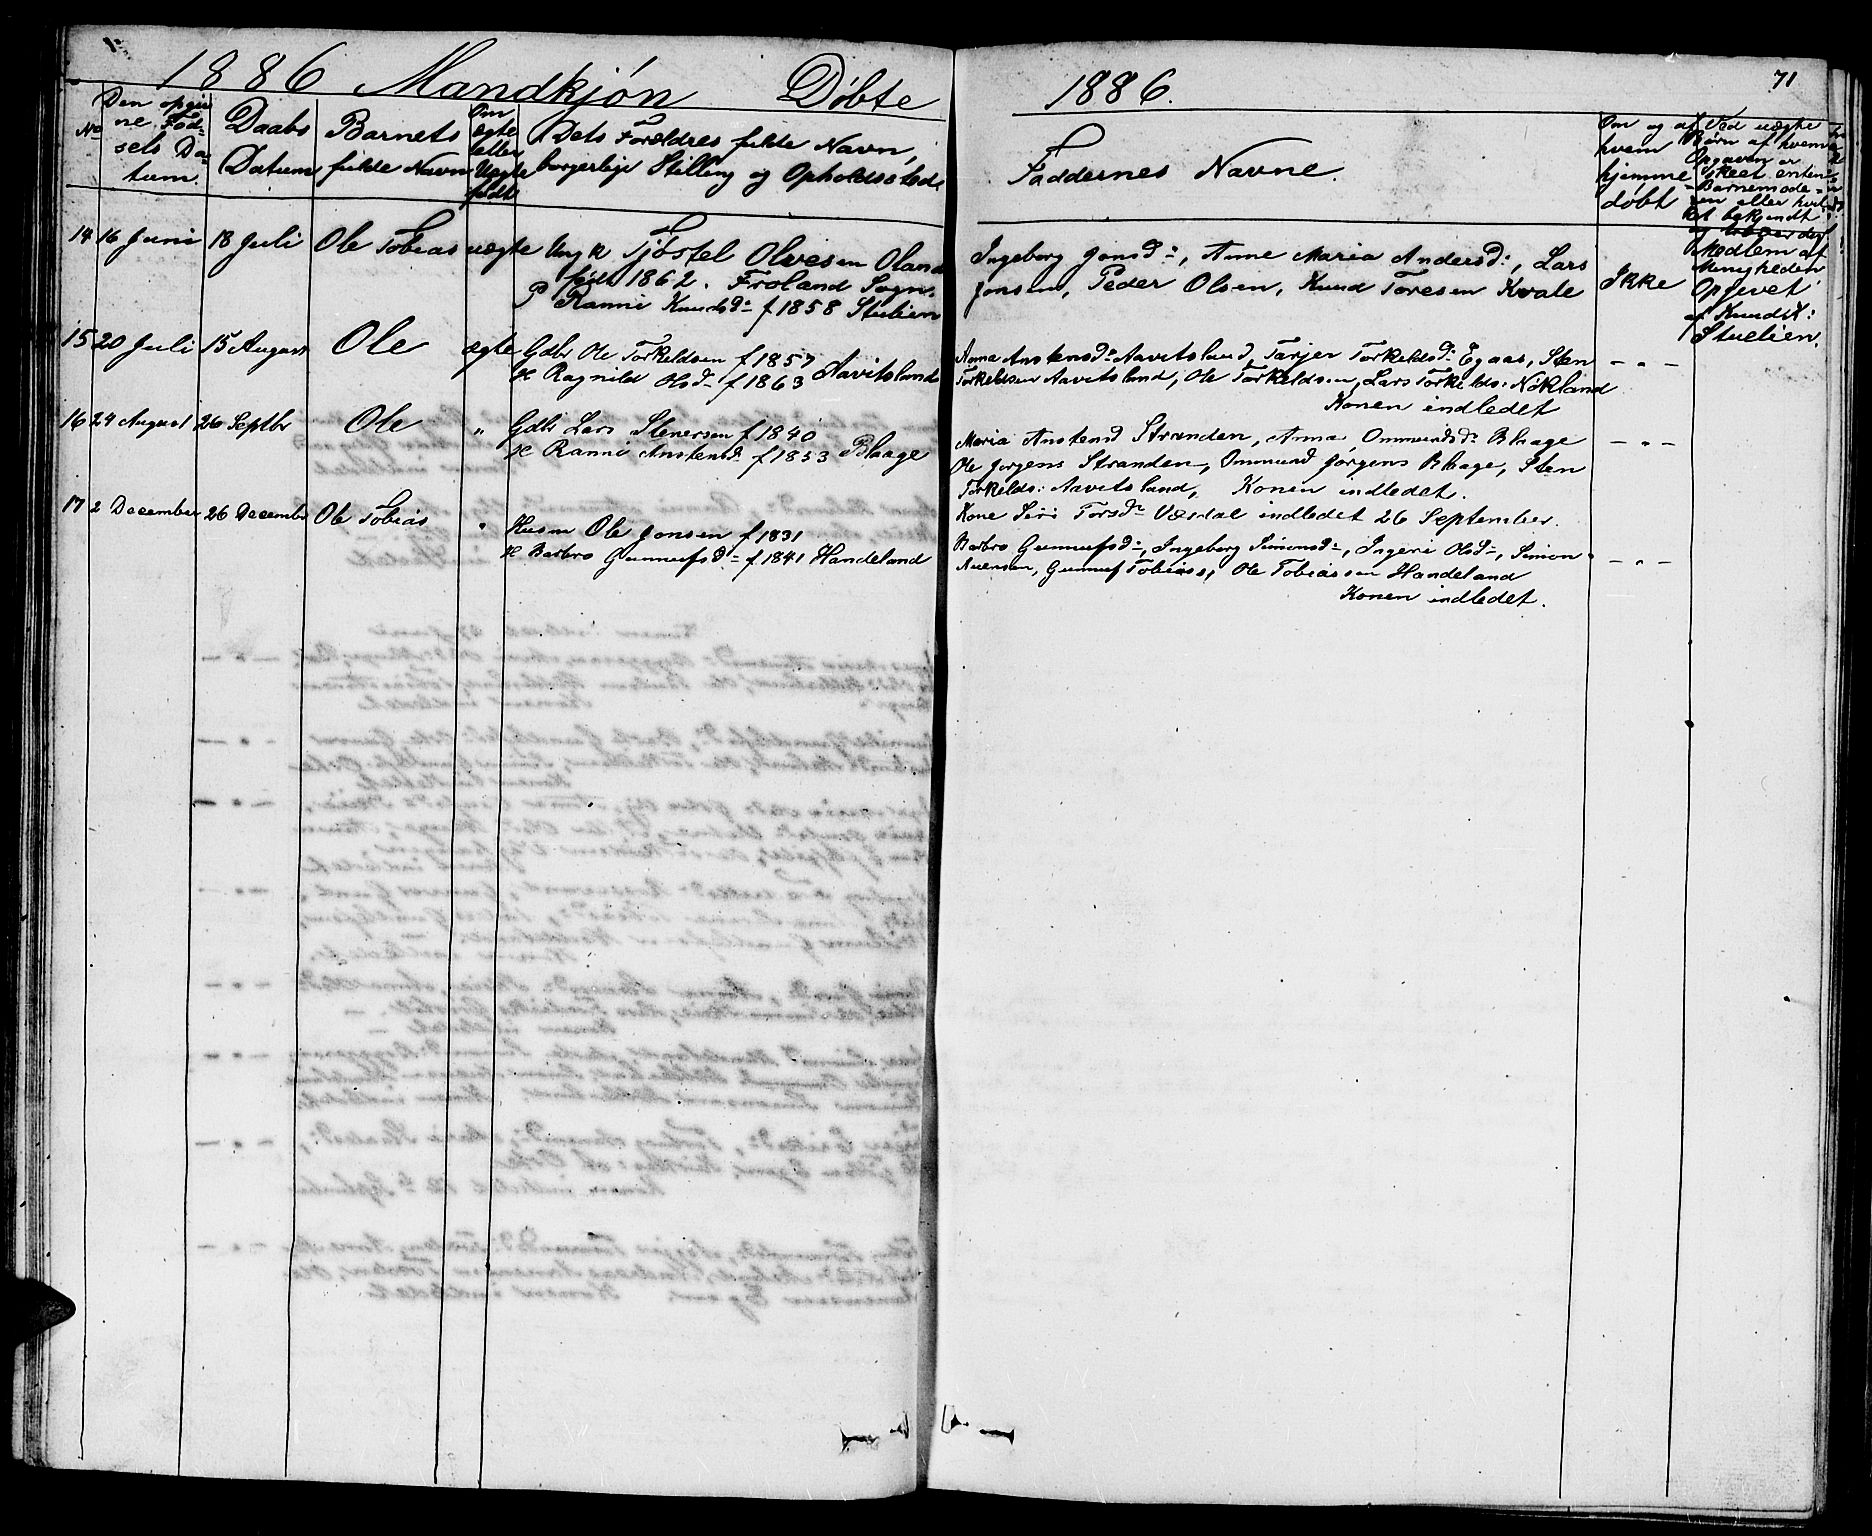 1886 Mandkjøn Døbte
1886.
71
No
Den opgiv
ne Fød-
sels Da-
tum.
Daabs
Datum
Barnets
fulde Navn
Om
ægte
eller
Uægte
født
Dets Forældres fulde Navn,
borgerlige Stilling og Opholdssted.
Faddernes Navne.
Om og af
hvem
hjemme
døbt
Ved uægte
Børn af hvem
Opgaven er
skeet enten
Barnemode-
ren eller
bekjendt
Medlem af
Menigheden
14 16 Juni 18 Juli Ole Tobias uægte Ungk Tjøstel Olvesen Oland
født 1862. Froland Sogn.
P Ranni Knudsd: f 1858 Stulien
Ingeborg Jonsd:, Anne Maria Andersd:, Lars
Jonsen, Peder Olsen, Knud Toresen Kvale
Ikke
Opgivet
af Knud
Stuelien.
15 20 Juli 15 August Ole ægte Gdbr Ole Torkeldsen f 1857
H Ragnild Olsd: f 1863 Aavitsland
Anna Anstensd: Aavitsland, Tarjer Torkeldsd: Egaas, Sten
Torkeldsen Aavitsland, Ole Torkeldsen, Lars Torkelds: Nökland
Konen indledet
- „ -
16 24 August 26 Septbr Ole „ Gdbr Lars Stenersen f 1840
H Ranni Anstensd: f 1853 Blaage
Maria Anstensd Stranden, Anna Ommundsd: Blaage
Ole Jørgens Stranden, Ommund Jørgens Blaage, Sten
Torkelds: Aavitsland, Konen indledet.
- „ -
Kone Siri Torsd: Værdal indledet 26 September.
17 2 December 26 Decembr Ole Tobias „ Husm Ole Jonsen f 1831
H Barbro Gunnufsd: f 1841 Handeland
Barbro Gunnufsd:, Ingeborg Simonsd:, Ingeri Olsd:, Simon
Auensen, Gunnuf Tobiass, Ole Tobiassen Handeland
Konen indledet.
- „ -